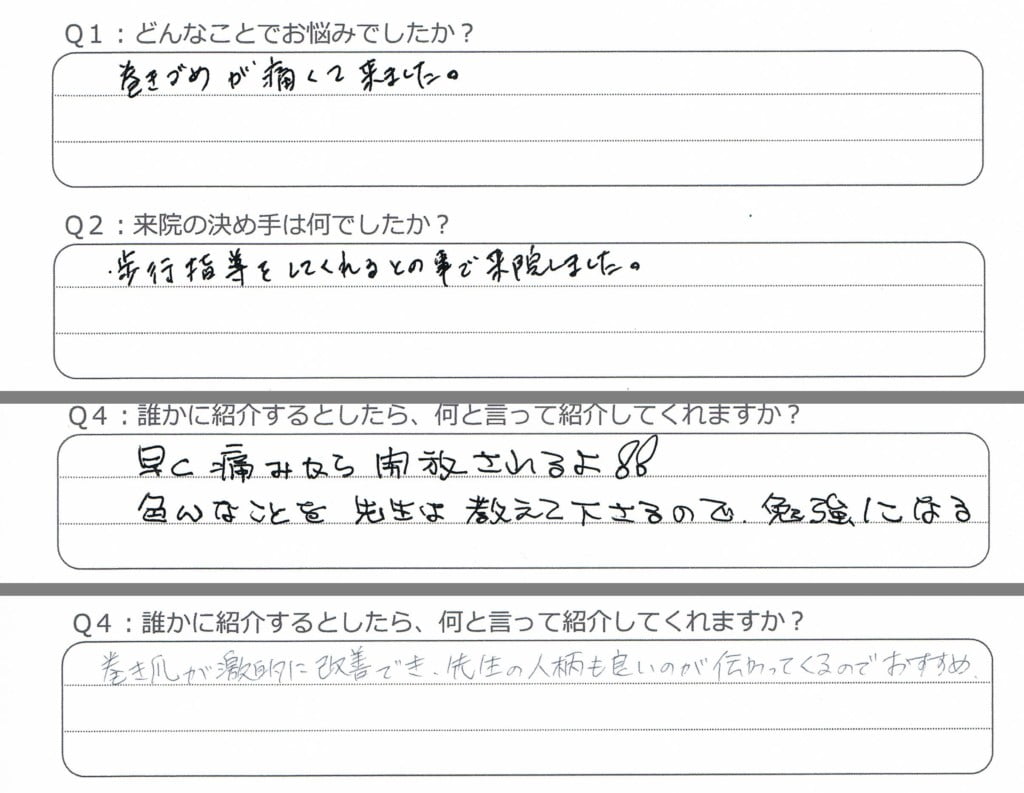 Q1：どんなことでお悩みでしたか？
巻きづめが痛くて来ました。
Q2：来院の決め手は何でしたか？
歩行指導をしてくれるとの事で来院しました。
Q4：誰かに紹介するとしたら、何と言って紹介してくれますか？
早く痛みから開放されるよ
色んなことを先生は教えて下さるので、勉強になる
Q4：誰かに紹介するとしたら、何と言って紹介してくれますか？
巻き爪が激的に改善でき、先生の人柄も良いのが伝わってくるのでおすすめ、